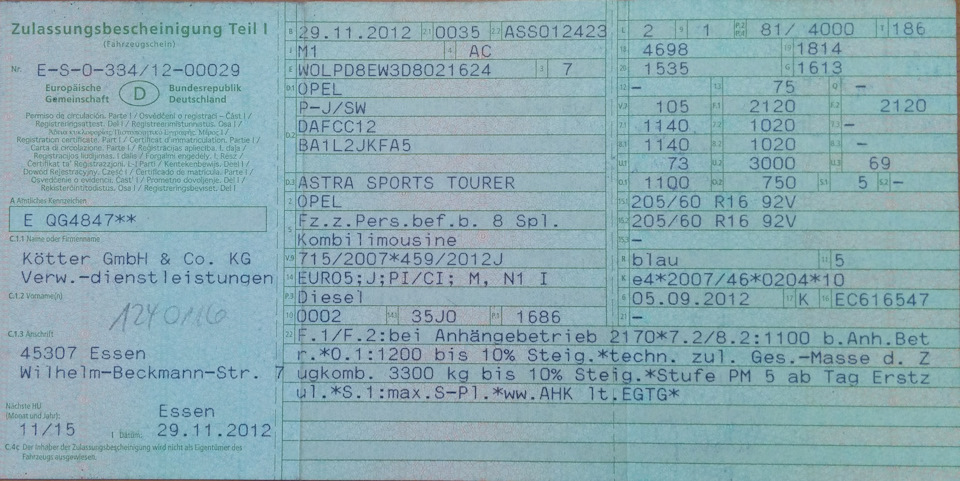 Zulassungsbescheinigung Teil I
(Fahrzeugschein)
Nr. E-S-0-334/12-00029
Europäische Gemeinschaft D Bundesrepublik Deutschland
Permiso de circulación. Parte I / Osvědčení o registraci – Část I /
Registreringsattest. Del I / Registreerimistunnistus. Osa I /
Άδεια κυκλοφορίας. Πιστοποιητικό Εγγραφής. Μέρος I /
Registration certificate. Part I / Certificat d'immatriculation. Partie I /
Carta di circolazione. Parte I / Reģistrācijas apliecība. I. daļa /
Registracijos liudijimas. I dalis / Forgalmi engedély. I. Rész /
Ċertifikat ta' Reġistrazzjoni. L-I Parti / Kentekenbewijs. Deel I /
Dowód Rejestracyjny. Część I / Certificado de matrícula. Parte I /
Osvedčenie o evidencii. Časť I / Prometno dovoljenje. Del I /
Rekisteröintitodistus. Osa I / Registreringsbeviset. Del I
A Amtliches Kennzeichen
E QG4847**
C.1.1 Name oder Firmenname
Kötter GmbH & Co. KG
Verw.-dienstleistungen
C.1.2 Vorname(n)
C.1.3 Anschrift
45307 Essen
Wilhelm-Beckmann-Str. 7
Nächste HU
(Monat und Jahr): Essen
11/15 I Datum: 29.11.2012
C.4c Der Inhaber der Zulassungsbescheinigung wird nicht als Eigentümer des
Fahrzeugs ausgewiesen.
B 29.11.2012 2.1 0035 2.2 ASS012423
J M1 4 AC
E W0LPD8EW3D8021624 3 7
D.1 OPEL
P-J/SW
D.2 DAFCC12
BA1L2JKFA5
D.3 ASTRA SPORTS TOURER
2 OPEL
5 Fz.z.Pers.bef.b. 8 Spl.
Kombilimousine
V.9 715/2007*459/2012J
14 EURO5;J;PI/CI; M, N1 I
P.3 Diesel
10 0002 14.1 35J0 P.1 1686
L 2 9 1 P.2 P.4 81/ 4000 T 186
18 4698 19 1814
20 1535 G 1613
12 – 13 75 Q –
V.7 105 F.1 2120 F.2 2120
7.1 1140 7.2 1020 7.3 –
8.1 1140 8.2 1020 8.3 –
U.1 73 U.2 3000 U.3 69
O.1 1100 O.2 750 S.1 5 S.2 –
15.1 205/60 R16 92V
15.2 205/60 R16 92V
15.3 –
R blau 11 5
K e4*2007/46*0204*10
6 05.09.2012 17 K 16 EC616547
21 –
22 F.1/F.2:bei Anhängebetrieb 2170*7.2/8.2:1100 b.Anh.Bet
r.*O.1:1200 bis 10% Steig.*techn. zul. Ges.-Masse d. Z
ugkomb. 3300 kg bis 10% Steig.*Stufe PM 5 ab Tag Erstz
ul.*S.1:max.S-Pl.*ww.AHK lt.EGTG*